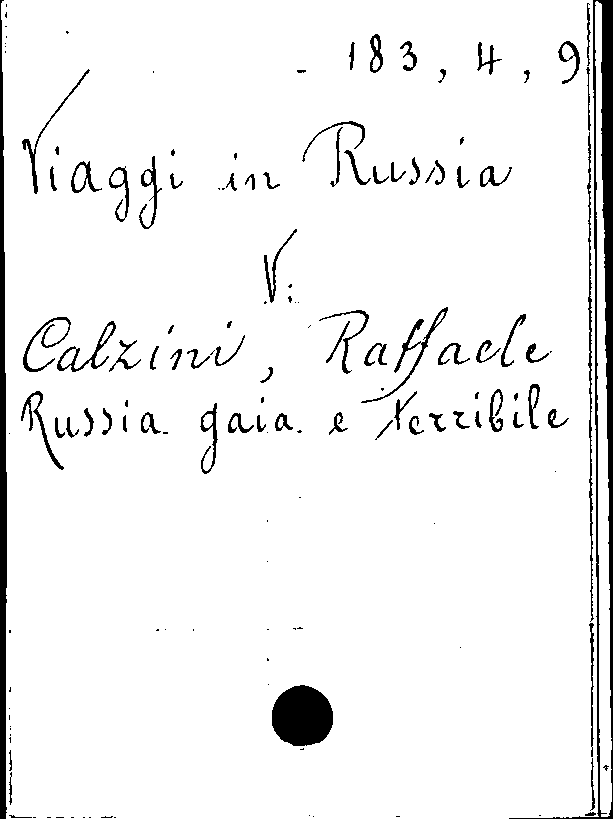 183, 4, 9
Viaggi in Russia
V:
Calzini, Raffaele
Russia gaia e terribile